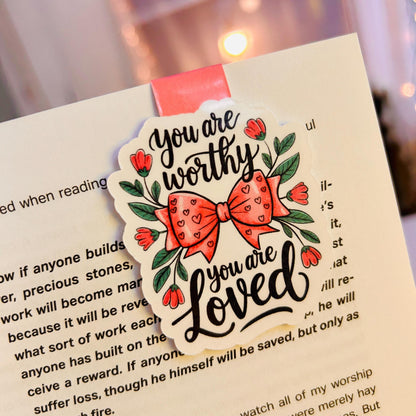 You are
worthy
you are
Loved
ul
ed when reading
il-
's
ow if anyone builds
it,
er, precious stones,
st
work will become man
at
because it will be reve
ill re-
what sort of work each
he will
anyone has built on the
ceive a reward. If anyone
suffer loss, though he himself will be saved, but only as
h fire.
watch all of my worship
were merely hay
s. But